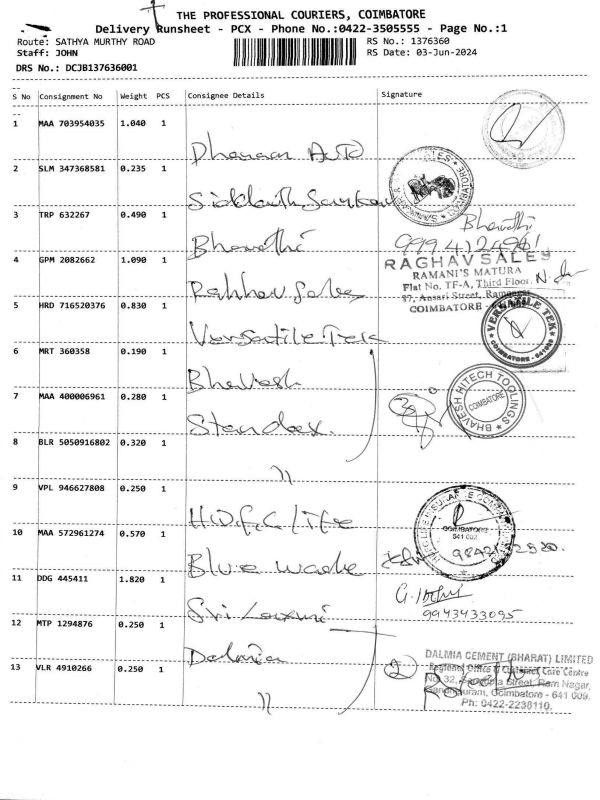 THE PROFESSIONAL COURIERS, COIMBATORE
Delivery Runsheet - PCX - Phone No.:0422-3505555 - Page No.:1
Route: SATHYA MURTHY ROAD
Staff: JOHN
RS No.: 1376360
RS Date: 03-Jun-2024
DRS No.: DCJB137636001
S No Consignment No Weight PCS Consignee Details Signature
1 MAA 703954035 1.040 1 Auto
2 SLM 347368581 0.235 1 Siddharth Sanitary
3 TRP 632267 0.490 1 Bharathi
Bharathi
4 GPM 2082662 1.090 1 Raghav Sales
RAGHAV SALES
RAMANI'S MATURA
Flat No. TF-A, Third Floor,
57, Ansari Street, Ramnagar
COIMBATORE -
5 HRD 716520376 0.830 1 Versatile Tek
VERSATILE TEK
COIMBATORE - 641009
6 MRT 360358 0.190 1 Bhavesh
BHAVESH HITECH TOOLINGS
COIMBATORE
7 MAA 400006961 0.280 1 Standex.
8 BLR 5050916802 0.320 1 "
9 VPL 946627808 0.250 1 H.D.F.C. Life
COIMBATORE
641 002
10 MAA 572961274 0.570 1 Blue
11 DDG 445411 1.820 1 Sri Laxmi
9943433095
12 MTP 1294876 0.250 1 Dalmia
13 VLR 4910266 0.250 1 "
2
DALMIA CEMENT (BHARAT) LIMITED
Regional Office & Customer Care Centre
No. 32, Street, Ram Nagar,
Gandhipuram, Coimbatore - 641 009,
Ph: 0422-2238110.